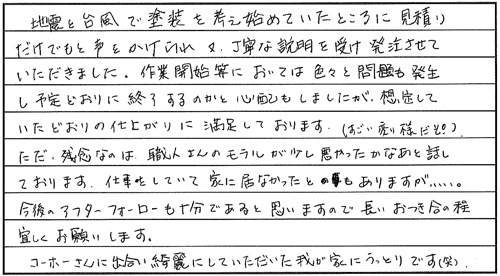 地震と台風で塗装を考え始めていたところに見積り
だけでもと声をかけられ又、丁寧な説明を受け発注させて
いただきました。作業開始等においては色々と問題も発生
し予定どおりに終了するのかと心配もしましたが、想定して
いたどおりの仕上がりに満足しております。(すごい 様だぞ!)
ただ、残念なのは、職人さんのモラルが少し悪かったかなあと話し
ております。仕事をしていて家に居なかったと の事もありますが.....。
今後のアフターフォローも十分であると思いますので長いおつき合の程
宜しくお願いします。
コーホーさんに出合い綺麗にしていただいた我が家にうっとりです(笑)。